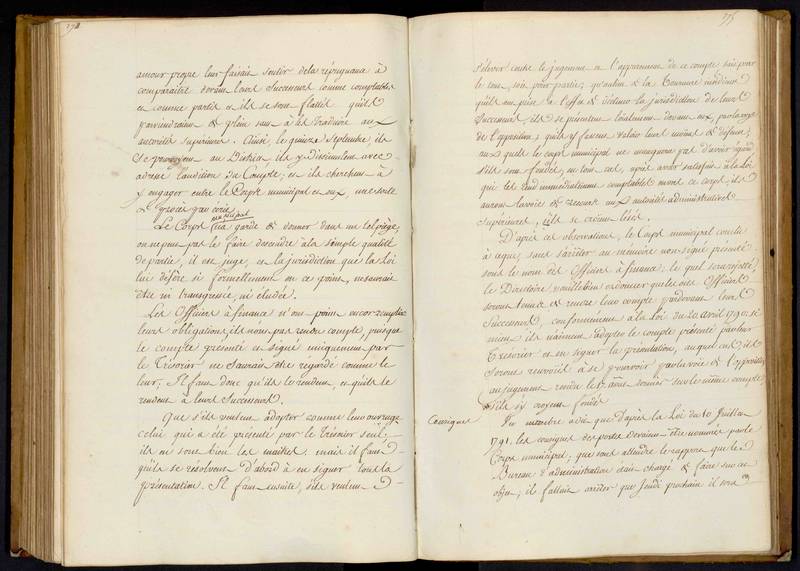 274
amour propre leur faisait sentir de la répugnance à
comparaître devant leurs Successeurs comme comptables
et comme partie et ils se sont flattés qu'ils
parviendraient & plein saut à les traduire aux
autorités supérieures. Ainsi, le quinze Septembre, ils
se pourvoyent au District, ils y dissimulent avec
adresse l'audition du Compte; et ils cherchent à
y engager entre le Corps municipal et eux, une sorte
de procès par écrit.
Le Corps municipal n'a garde de donner dans un tel piège,
on ne peut pas le faire descendre à la simple qualité
de partie, il est juge, et la jurisdiction que la Loi
lui défère si formellement en ce point, ne saurait
être ni transgressée, ni éludée.
Les Officiers à finance n'ont point encor rempli
leurs obligations, ils n'ont pas rendu compte, puisque
le compte présenté est signé uniquement par
le Trésorier ne saurait être regardé comme le
leur. Il faut donc qu'ils le rendent, et qu'ils le
rendent à leurs Successeurs.
Que s'ils veulent adopter comme leur ouvrage
celui qui a été présenté par le Trésorier seul,
ils en sont bien les maîtres, mais il faut
qu'ils se resolvent d'abord à en signer tous la
présentation. Il faut ensuite, s'ils veulent
275
s'élever contre le jugement et l'apurement de ce compte soit pour
le tout, soit pour partie; qu'au lieu de la tournure
qu'ils ont prise à l'effet de décliner la jurisdiction de leurs
Successeurs, ils se présentent loialement devant eux, par la voye
de l'opposition; qu'ils y fassent valoir leurs moïens & défenses,
auxquels le corps municipal ne manquera pas d'avoir égard
s'ils sont fondés, en tout cas, après avoir satisfait à la Loi
qui les rend immédiatement comptables envers ce corps, ils
auront la voie de recourir aux autorités administratives
Supérieures, s'ils se croient lésés.
D'après ces observations, le Corps municipal conclut
à ce que, sans s'arrêter au mémoire non signé présenté
sous le nom des Officiers à finance, lequel sera rejetté,
le Directoire veuille bien ordonner que les dits Officiers
seront tenus de rendre leur compte pardevant leurs
Successeurs, conformément à la Loi du 20 avril 1790, si
mieux ils n'aiment adopter le compte présenté par leur
Trésorier et en signer la présentation, auquel cas, ils
seront renvoiés à se pourvoir par la voie de l'opposition
au jugement rendu le 17 août dernier sur le même compte
s'ils s'y croyent fondés
Consignes
Un membre a dit que d'après la Loi du 10 Juillet
1791, les consignes des portes devaient être nommés par le
Corps municipal; que sans attendre le rapport que le
Bureau d'administration était chargé de faire sur cet
objet; il fallait arrêter que Jeudi prochain il sera